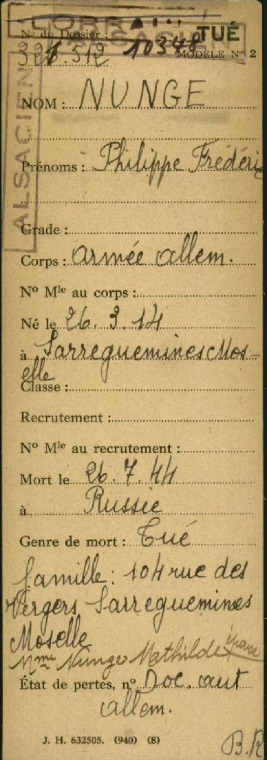 LORRAIN
ALSACIEN
TUÉ
N° du Dossier :
10348
MODÈLE N° 2
NOM : NUNGE
Prénoms : Philippe Frédéric
Grade :
Corps : armée allem.
N° Mle au corps :
Né le 26.3.14
à Sarreguemines Mos-
elle
Classe :
Recrutement :
N° Mle au recrutement :
Mort le 26.7.44
à Russie
Genre de mort : Tué
famille : 104 rue des
Vergers Sarreguemines
Moselle
Mme Nunge Mathilde épouse
État de pertes, n° Doc. aut
allem.
J. H. 632505. (940) (8)
B.R